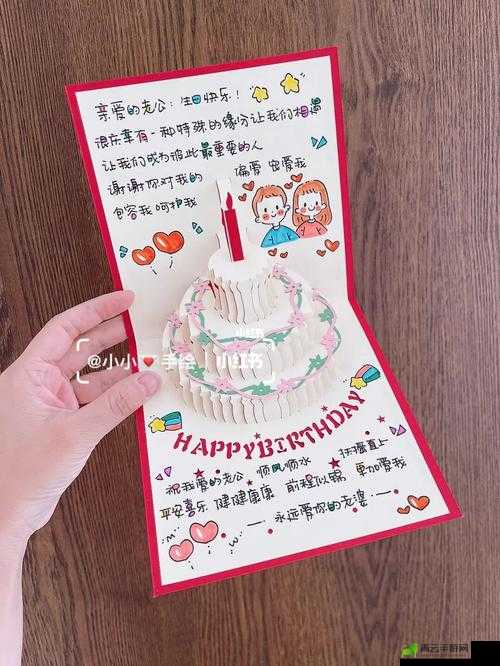 亲爱的老公：生日快乐！
很庆幸有一种特殊的缘分让我们相遇
让我们成为彼此最重要的人
谢谢你对我的 偏爱 宠爱我
包容我 呵护我
@小小❤手绘 小红书
小红书
HAPPYBIRTHDAY
祝我爱的老公 顺风顺水 扶摇直上
平安喜乐 健健康康 前程似锦 更加爱我
— 永远爱你的老婆 —